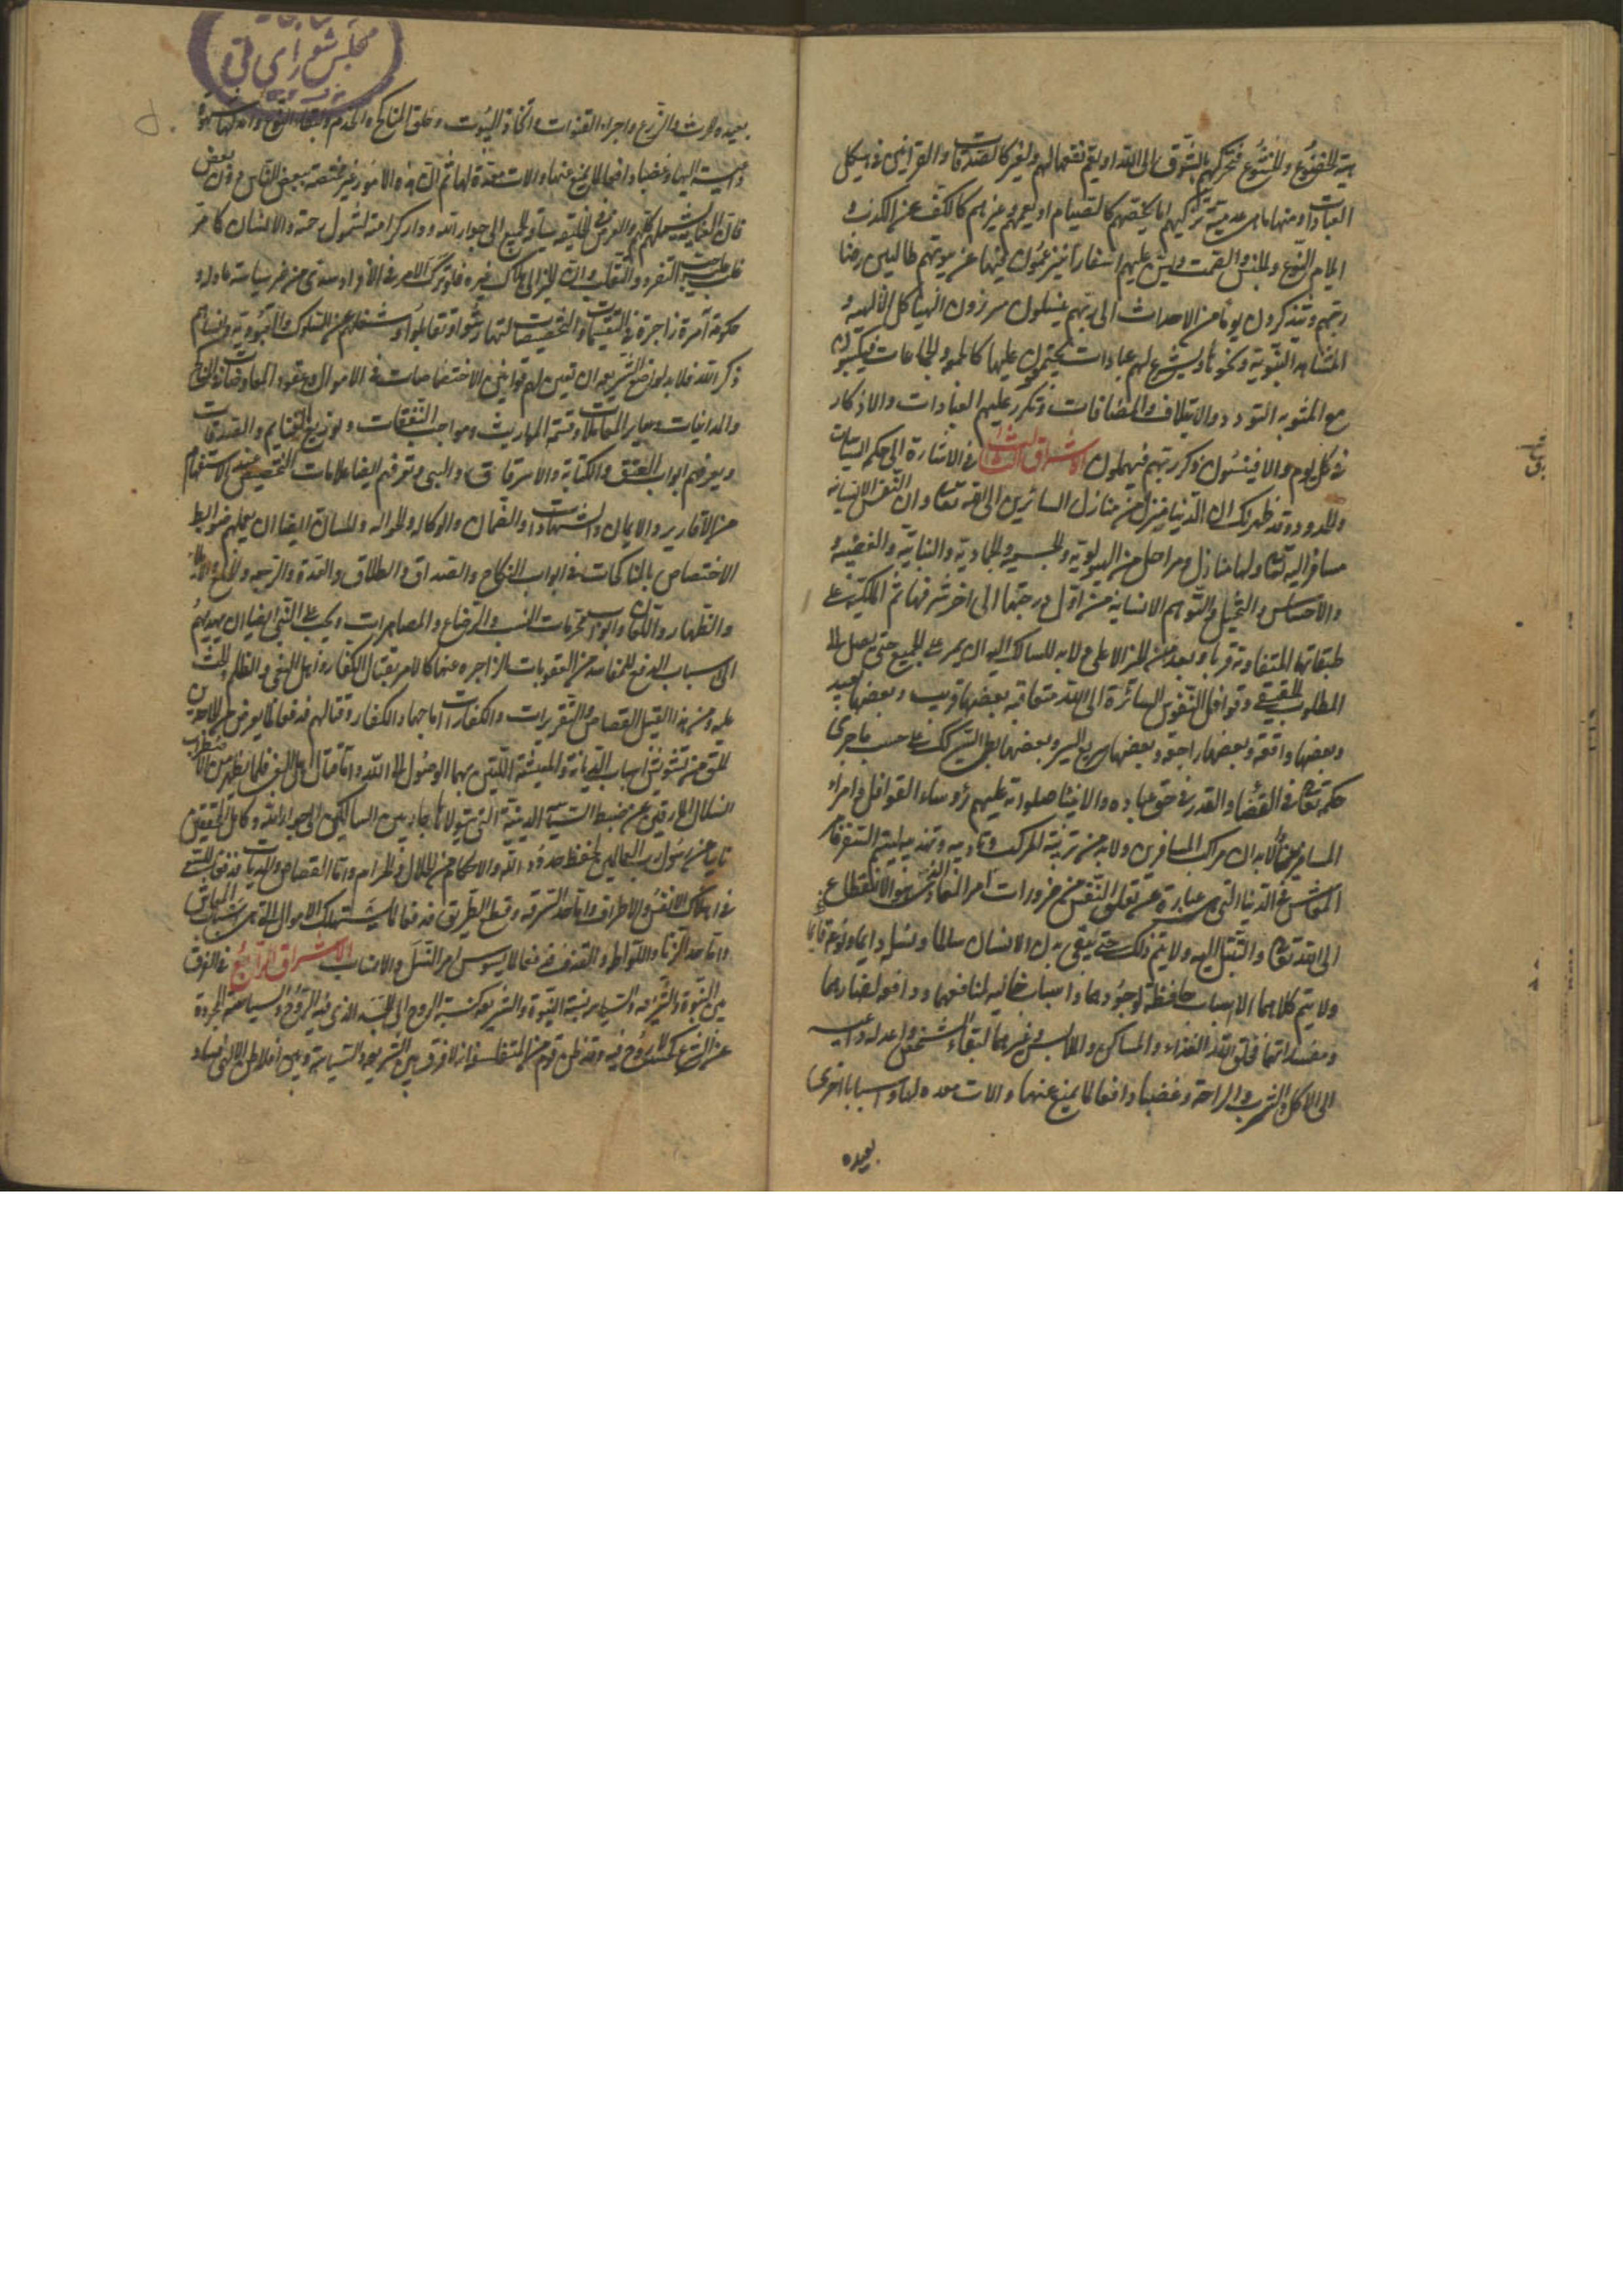 هيئة الخضوع والخشوع فتحركهم بالشوق الى الله او يعم نفعها لهم ولغيرهم كالصدقات والقرابين في هيكل
العبادات ومنها ما هي عدمية تزكيهم اما يخصهم كالصيام او يعمهم وغيرهم كالكف عن الكذب و
ايلام النوع والجنس والصمت ويسن عليهم اسفارا ينزعجون فيها عن بيوتهم طالبين رضا
ربهم ويتذكرون يوما من الاجداث الى ربهم ينسلون سيزورون الهياكل الالهية و
المشاهد النبوية ونحوها ويشرع لهم عبادات يجتمعون عليها كالجمعة والجماعات فيكسبون
مع المثوبه التودد والايتلاف والمصافات وتكرر عليهم العبادات والاذكار
في كل يوم والا فينسون ذكر ربهم فيهملون الاشراق الثالث في الاشارة الى حكم السياسات
والحدود وقد ظهر لك ان الدنيا منزل من منازل السائرين الى الله تعالى وان النفس الانسانية
مسافر اليه تعالى ولها منازل ومراحل من الهيولوية والجسمية والجمادية والنباتية والغضبية
والاحساس والتخيل والتوهم الانسانية من اول درجتها الى اخر شرفها ثم الملكية على
طبقاتها المتفاوتة قربا وبعدا من الخير الاعلى ولابد للسالك اليه ان يمر على الجميع حتى يصل الى
المطلوب الحقيقي وقوافل النفوس السائرة الى الله متعاقبة بعضها قريب وبعضها بعيد
وبعضها واقفة وبعضها راجعة وبعضها سريع السير وبعضها بطي السير كل ذلك على حسب ما جرى
حكمه تعالى في القضاء والقدر في حق عباده والانبياء صلوات عليهم رؤساء القوافل وامراء
المسافرين والابدان مراكب المسافرين ولابد من تربية المركب وتاديبه وتهذيبه ليتم السفر فامر
المعاش في الدنيا التي هي عبارة عن تعلق النفس من ضرورات امر المعاد الذي هو الانقطاع
الى الله تعالى والتبتل اليه ولا يتم ذلك حتى يبقى بدن الانسان سالما ونسله دايما ونوعه قايما
ولا يتم كلاهما الا باسباب حافظة لوجودهما واسباب جالبة لمنافعهما ودافعة لمضارهما
ومفسداتهما فخلق الله الغذاء والمساكن والملابس وغيرهما لبقاء الشخص واعد له داعية
الى الاكل والشرب والراحة وغضبا دافعا لما يمنع عنها والات معدة لها واسبابا اخرى
بعيده
بعيده كالحرث والزرع واجراء القنوات واتخاذ البيوت وخلق المناكح والخدم لبقاء النوع واعد لها شهوة
وداعية اليها وغضبا دافعا لما يمنع عنها والات معدة لها ثم ان هذه الامور غير مختصة ببعض الناس دون بعض
فان العناية شملهم كلهم والغرض في الخليقة سياقة الجميع الى جوار الله ودار كرامته لشمول رحمته والانسان كما مر
غلب عليه حب التفرد والتغلب وان انجر الى هلاك غيره فلو ترك الامر في الافراد سدى من غير سياسة عادلة و
حكومة آمرة زاجرة في التقسيمات والتخصيصات لتهارشوا وتقاتلوا وشغلهم عن السلوك والعبودية وانساهم
ذكر الله فلابد لواضع الشريعة ان يعين لهم قوانين الاختصاصات في الاموال وعقود المعاوضات والمناكح
والمداينات وساير المعاملات وقسمة المواريث ومواجب النفقات وتوزيع الغنايم والصدقات
ويعرفهم ابواب العتق والكتابة والاسترقاق والسبي ويعرفهم ايضا علامات التخصيص عند الاستفهام
من الاقارير والايمان والشهادات والضمان والوكالة والحوالة ولهم ايضا ان يعلمهم ضوابط
الاختصاص بالمناكحات في ابواب النكاح والصداق والطلاق والعدة والرجعة والخلع والايلاء
والظهار واللعان وابواب محرمات النسب والرضاع والمصاهرات ويجب على النبي ايضا ان يهديهم
الى اسباب الدفع للمفاسد من العقوبات الزاجرة عنها كالامر بقتال الكفار واهل البغي والظلم والحث
عليه ومن هذا القبيل القصاص والتعزيرات والكفارات اما جهاد الكفار وقتالهم فدفعا لما يعرض من الجاحدين
للحق من تشويش اسباب الديانة والمعيشة اللتين بهما الوصول الى الله واما قتال اهل البغي فلما يظهر من الاضطراب
انسلال المارقين عن ضبط السياسة الدينية التي يتولاها حارس السالكين الى جوار الله وكافل المحققين
نايبا عن رسول رب العالمين لحفظ حدود الله والاحكام من الحلال والحرام واما القصاص والديات فدفعا للسعي
في اهلاك الانفس والاطراف واما حد السرقة وقطع الطريق فدفعا لما يستهلك الاموال التي هي اسباب المعاش
واما حد الزنا واللواط والقذف فدفعا لما يشوش امر النسل والانساب الاشراق الرابع في الفرق
بين النبوة والشريعة والسياسة نسبة النبوة الى الشريعة كنسبة الروح الى الجسد الذي فيه الروح والسياسة المجردة
عن الشرع كجسد لا روح فيه وقد ظن قوم من المتفلسفة انه لا فرق بين الشريعة والسياسة وبين افلاطن الالهي فساد